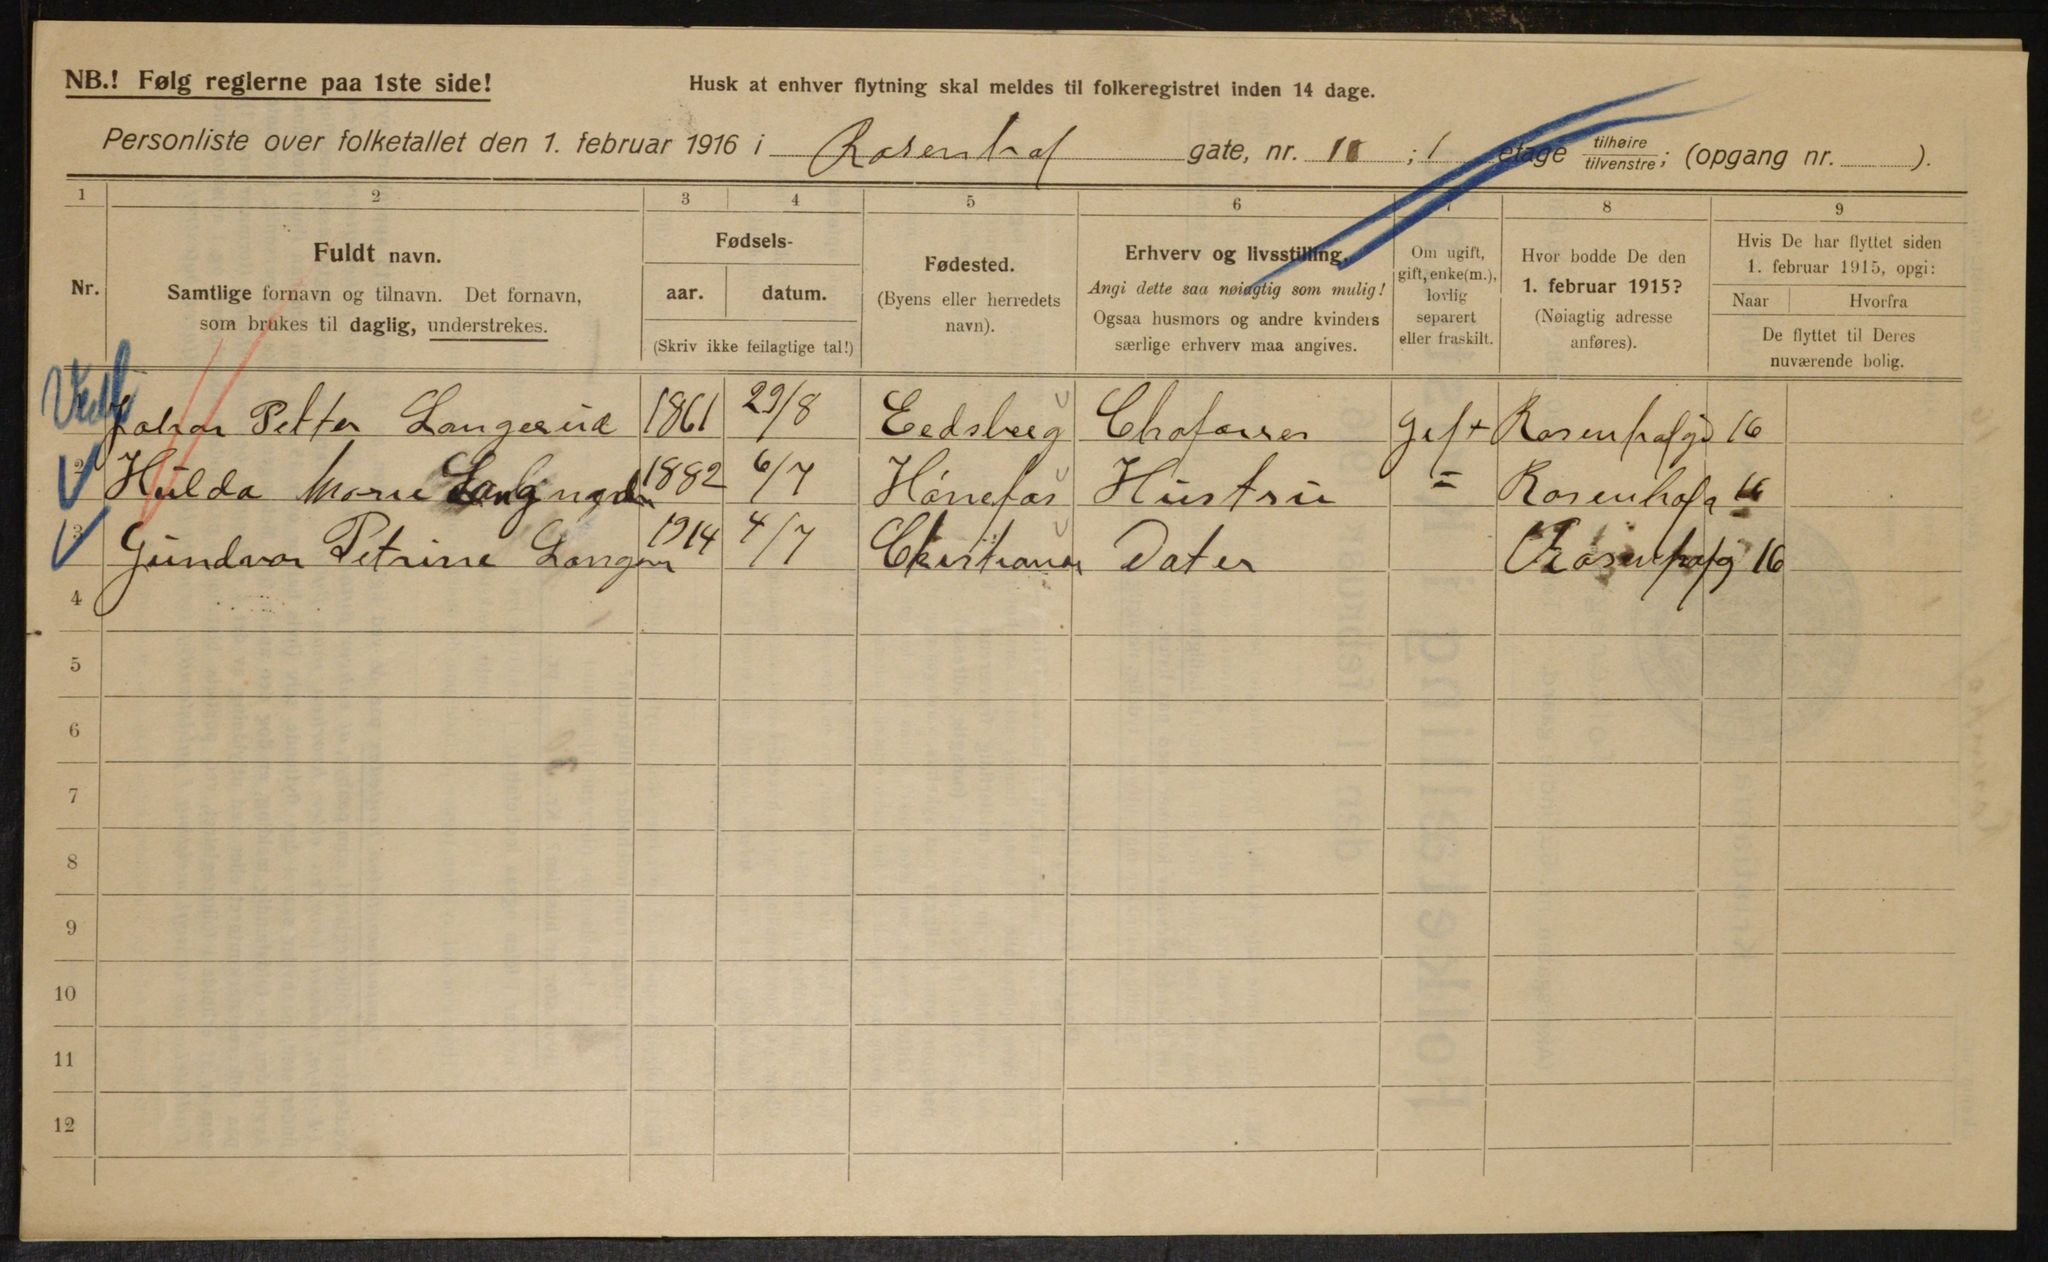 NB.! Følg reglerne paa 1ste side!
Husk at enhver flytning skal meldes til folkeregistret inden 14 dage.
Personliste over folketallet den 1. februar 1916 i Rosenhof gate, nr. ; 1 etage tilhøire/tilvenstre; (opgang nr. ).
1 2 3 4 5 6 7 8 9
Nr.
Fuldt navn.
Samtlige fornavn og tilnavn. Det fornavn,
som brukes til daglig, understrekes.
Fødsels-
aar. datum.
(Skriv ikke feilagtige tal!)
Fødested.
(Byens eller herredets
navn).
Erhverv og livsstilling.
Angi dette saa nøiagtig som mulig!
Ogsaa husmors og andre kvinders
særlige erhverv maa angives.
Om ugift,
gift, enke(m.),
lovlig
separert
eller fraskilt.
Hvor bodde De den
1. februar 1915?
(Nøiagtig adresse
anføres).
Hvis De har flyttet siden
1. februar 1915, opgi:
Naar Hvorfra
De flyttet til Deres
nuværende bolig.
Johan Petter Langerud 1861 29/8 Eedsberg gift Rosenhofg 16
2 Hulda Marie 1882 6/7 Hønefos Hustru = Rosenhofg 16
3 Gundvor Petrine Langer 1914 4/7 Christiania Dater Rosenhofg 16
4
5
6
7
8
9
10
11
12